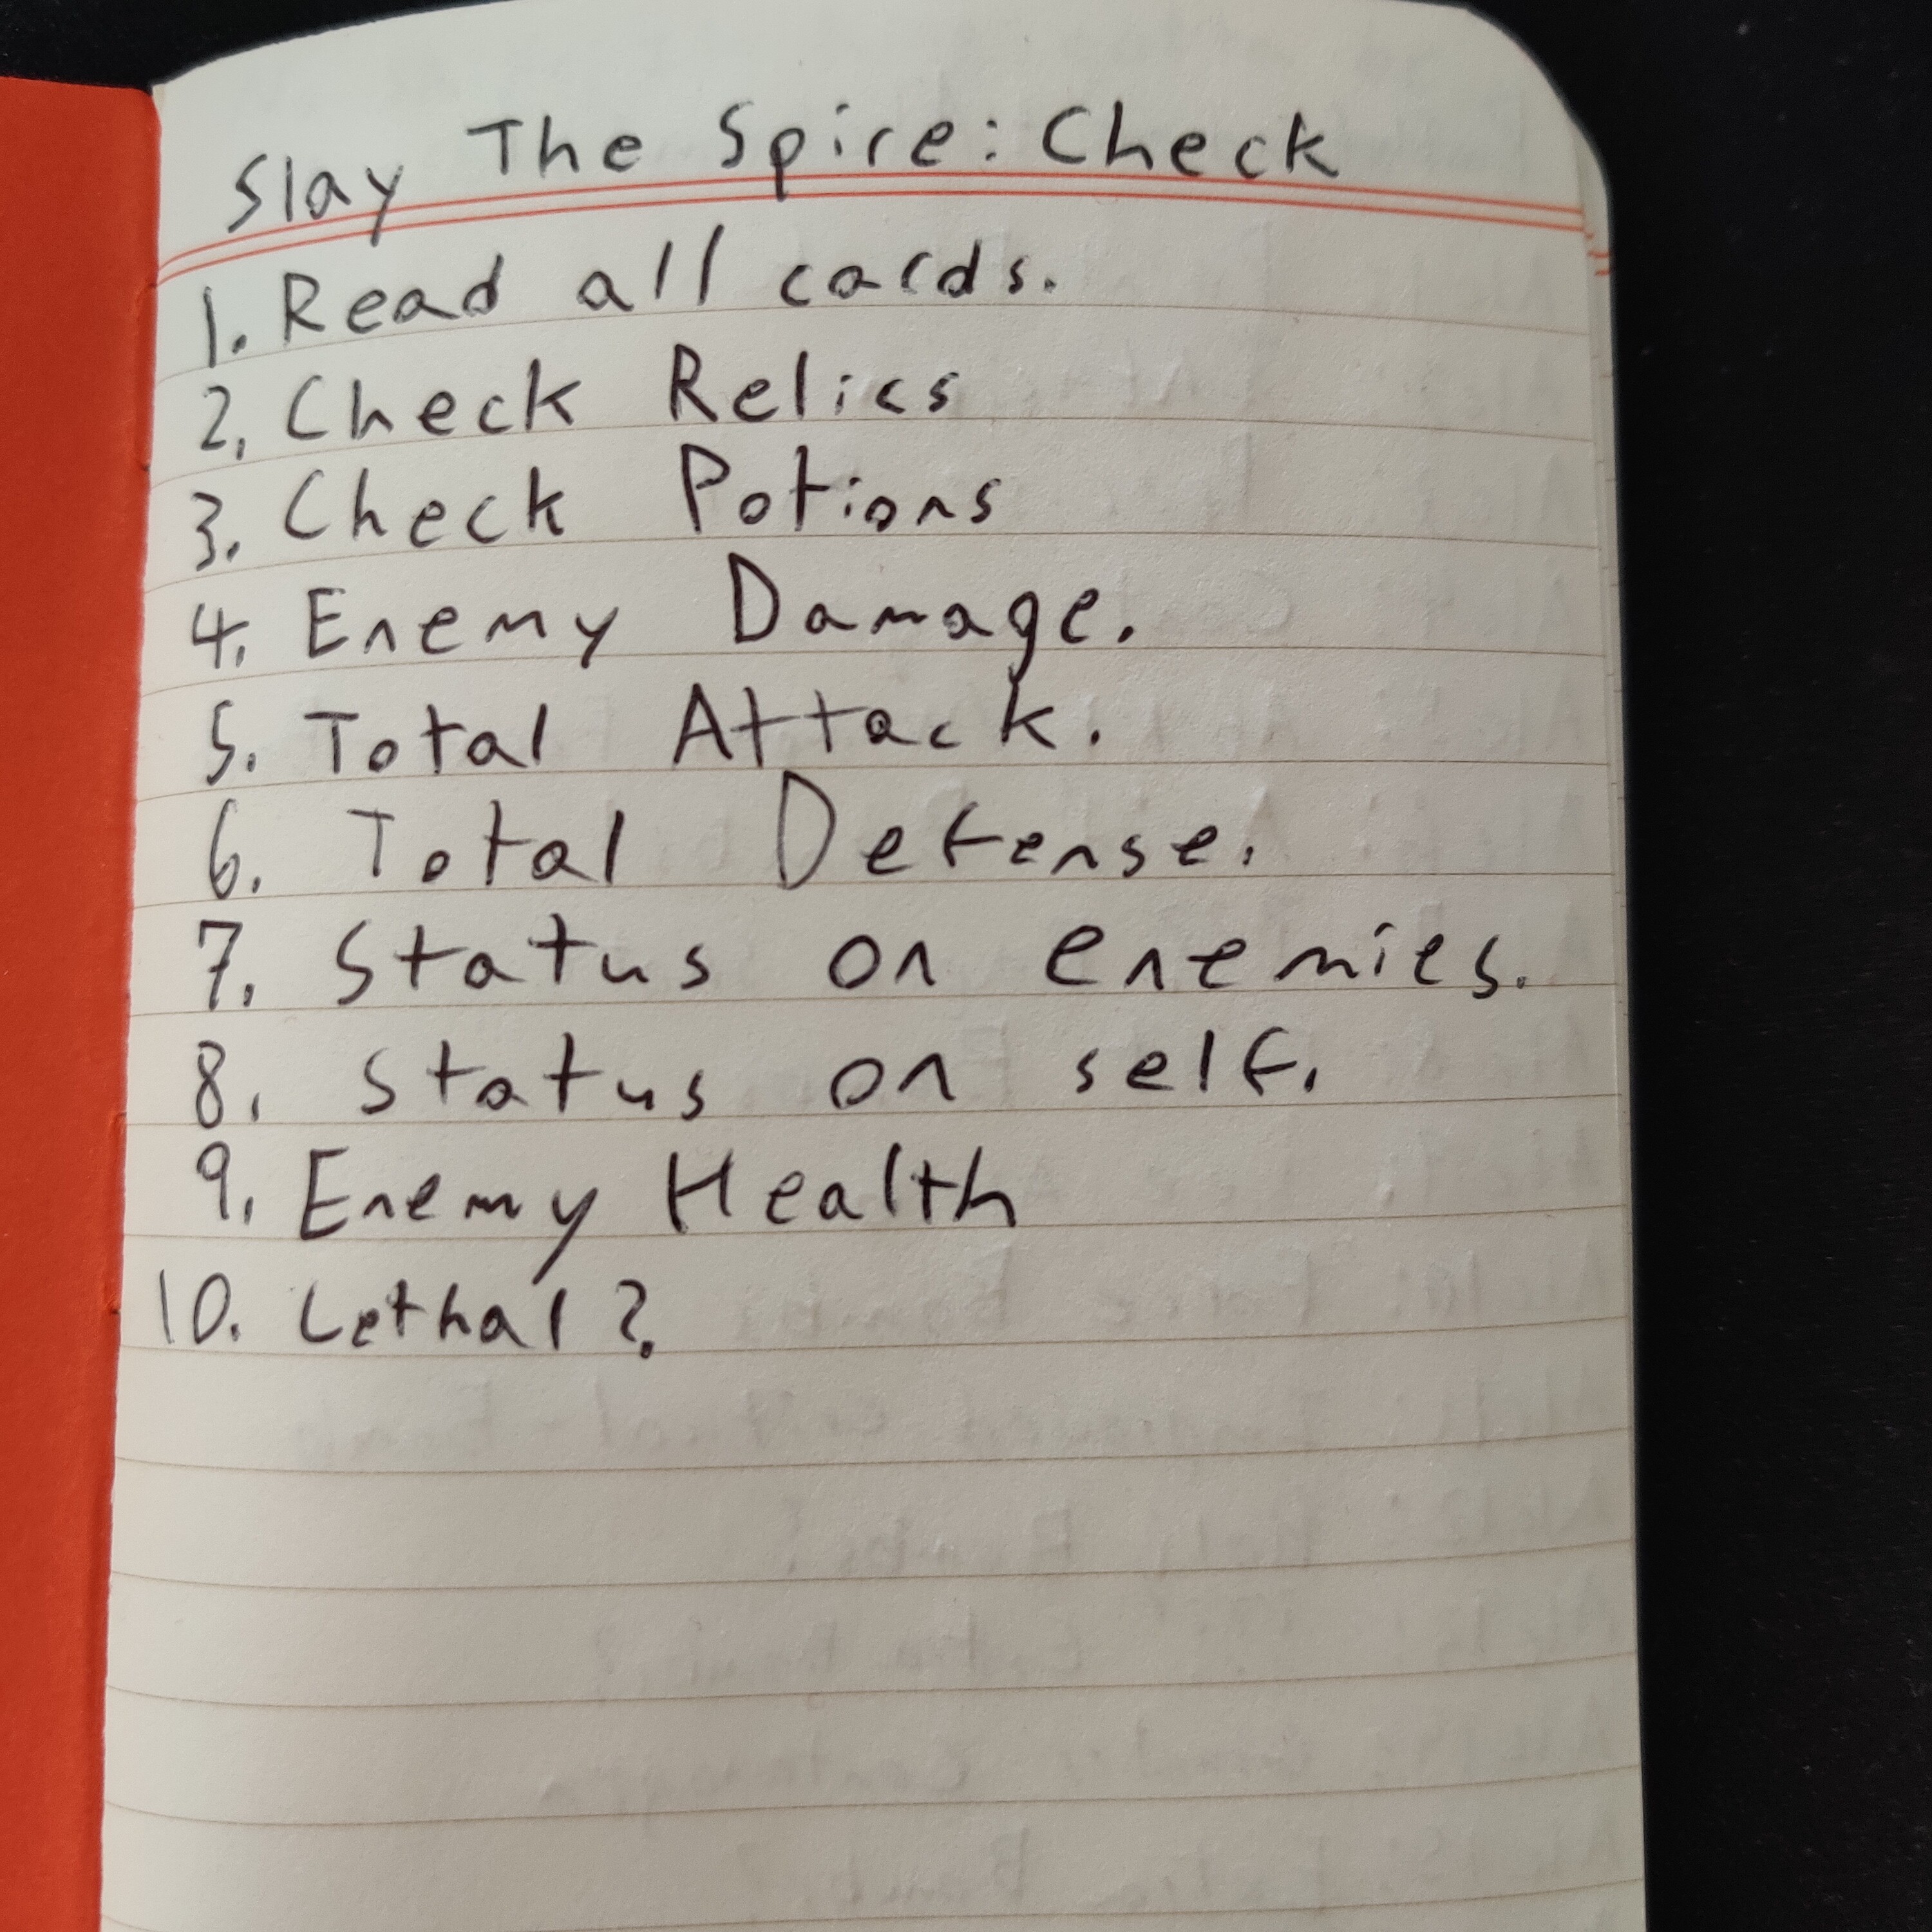 Slay The Spire: Check
1. Read all cards.
2. Check Relics
3. Check Potions
4. Enemy Damage.
5. Total Attack.
6. Total Defense.
7. Status on enemies.
8. Status on self.
9. Enemy Health
10. Lethal?